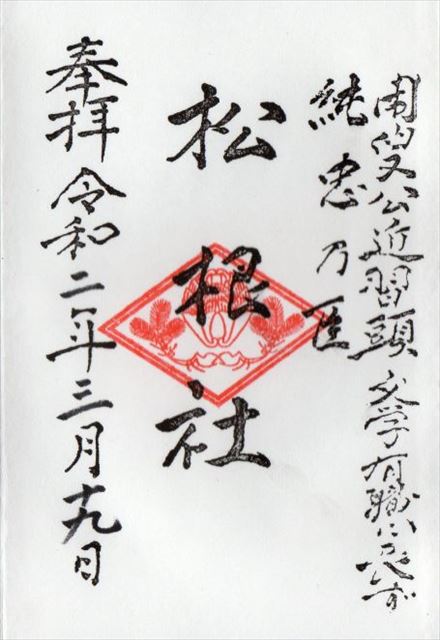 閑叟公近習頭 文学有職に
純忠乃臣
松根社
奉拝 令和二年三月十九日